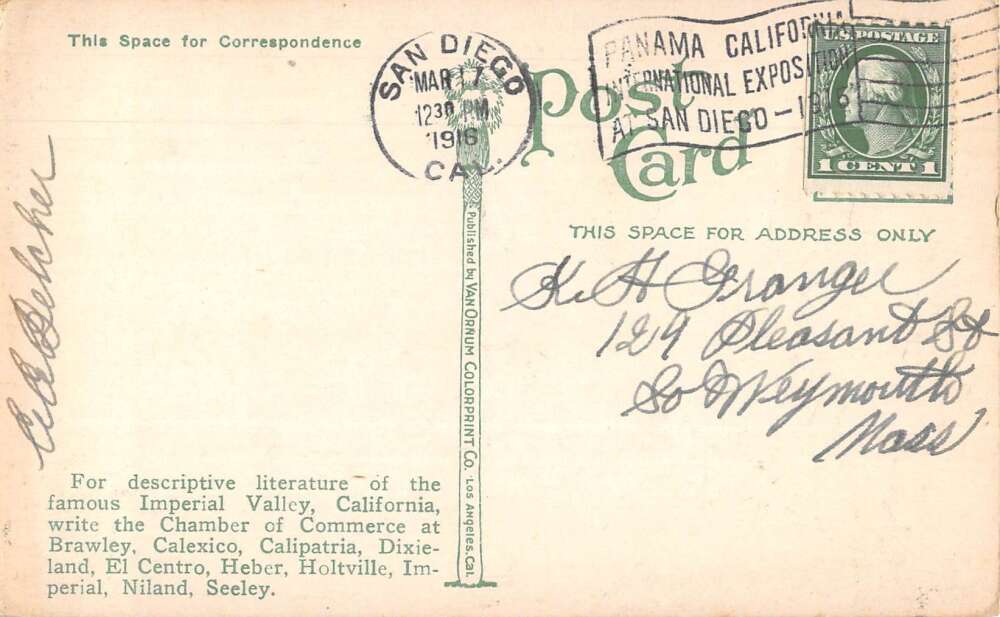 This Space for Correspondence
SAN DIEGO
MAR 17
12 30 PM
1916
CAL.
PANAMA CALIFORNIA
INTERNATIONAL EXPOSITION
AT SAN DIEGO - 1916
U.S. POSTAGE
1 CENT 1
Post
Card
THIS SPACE FOR ADDRESS ONLY
K. H Granger
124 Pleasant St
So Weymouth
Mass
Published by VAN ORNUM COLORPRINT CO. LOS ANGELES, CAL.
Belcher
For descriptive literature of the
famous Imperial Valley, California,
write the Chamber of Commerce at
Brawley, Calexico, Calipatria, Dixie-
land, El Centro, Heber, Holtville, Im-
perial, Niland, Seeley.